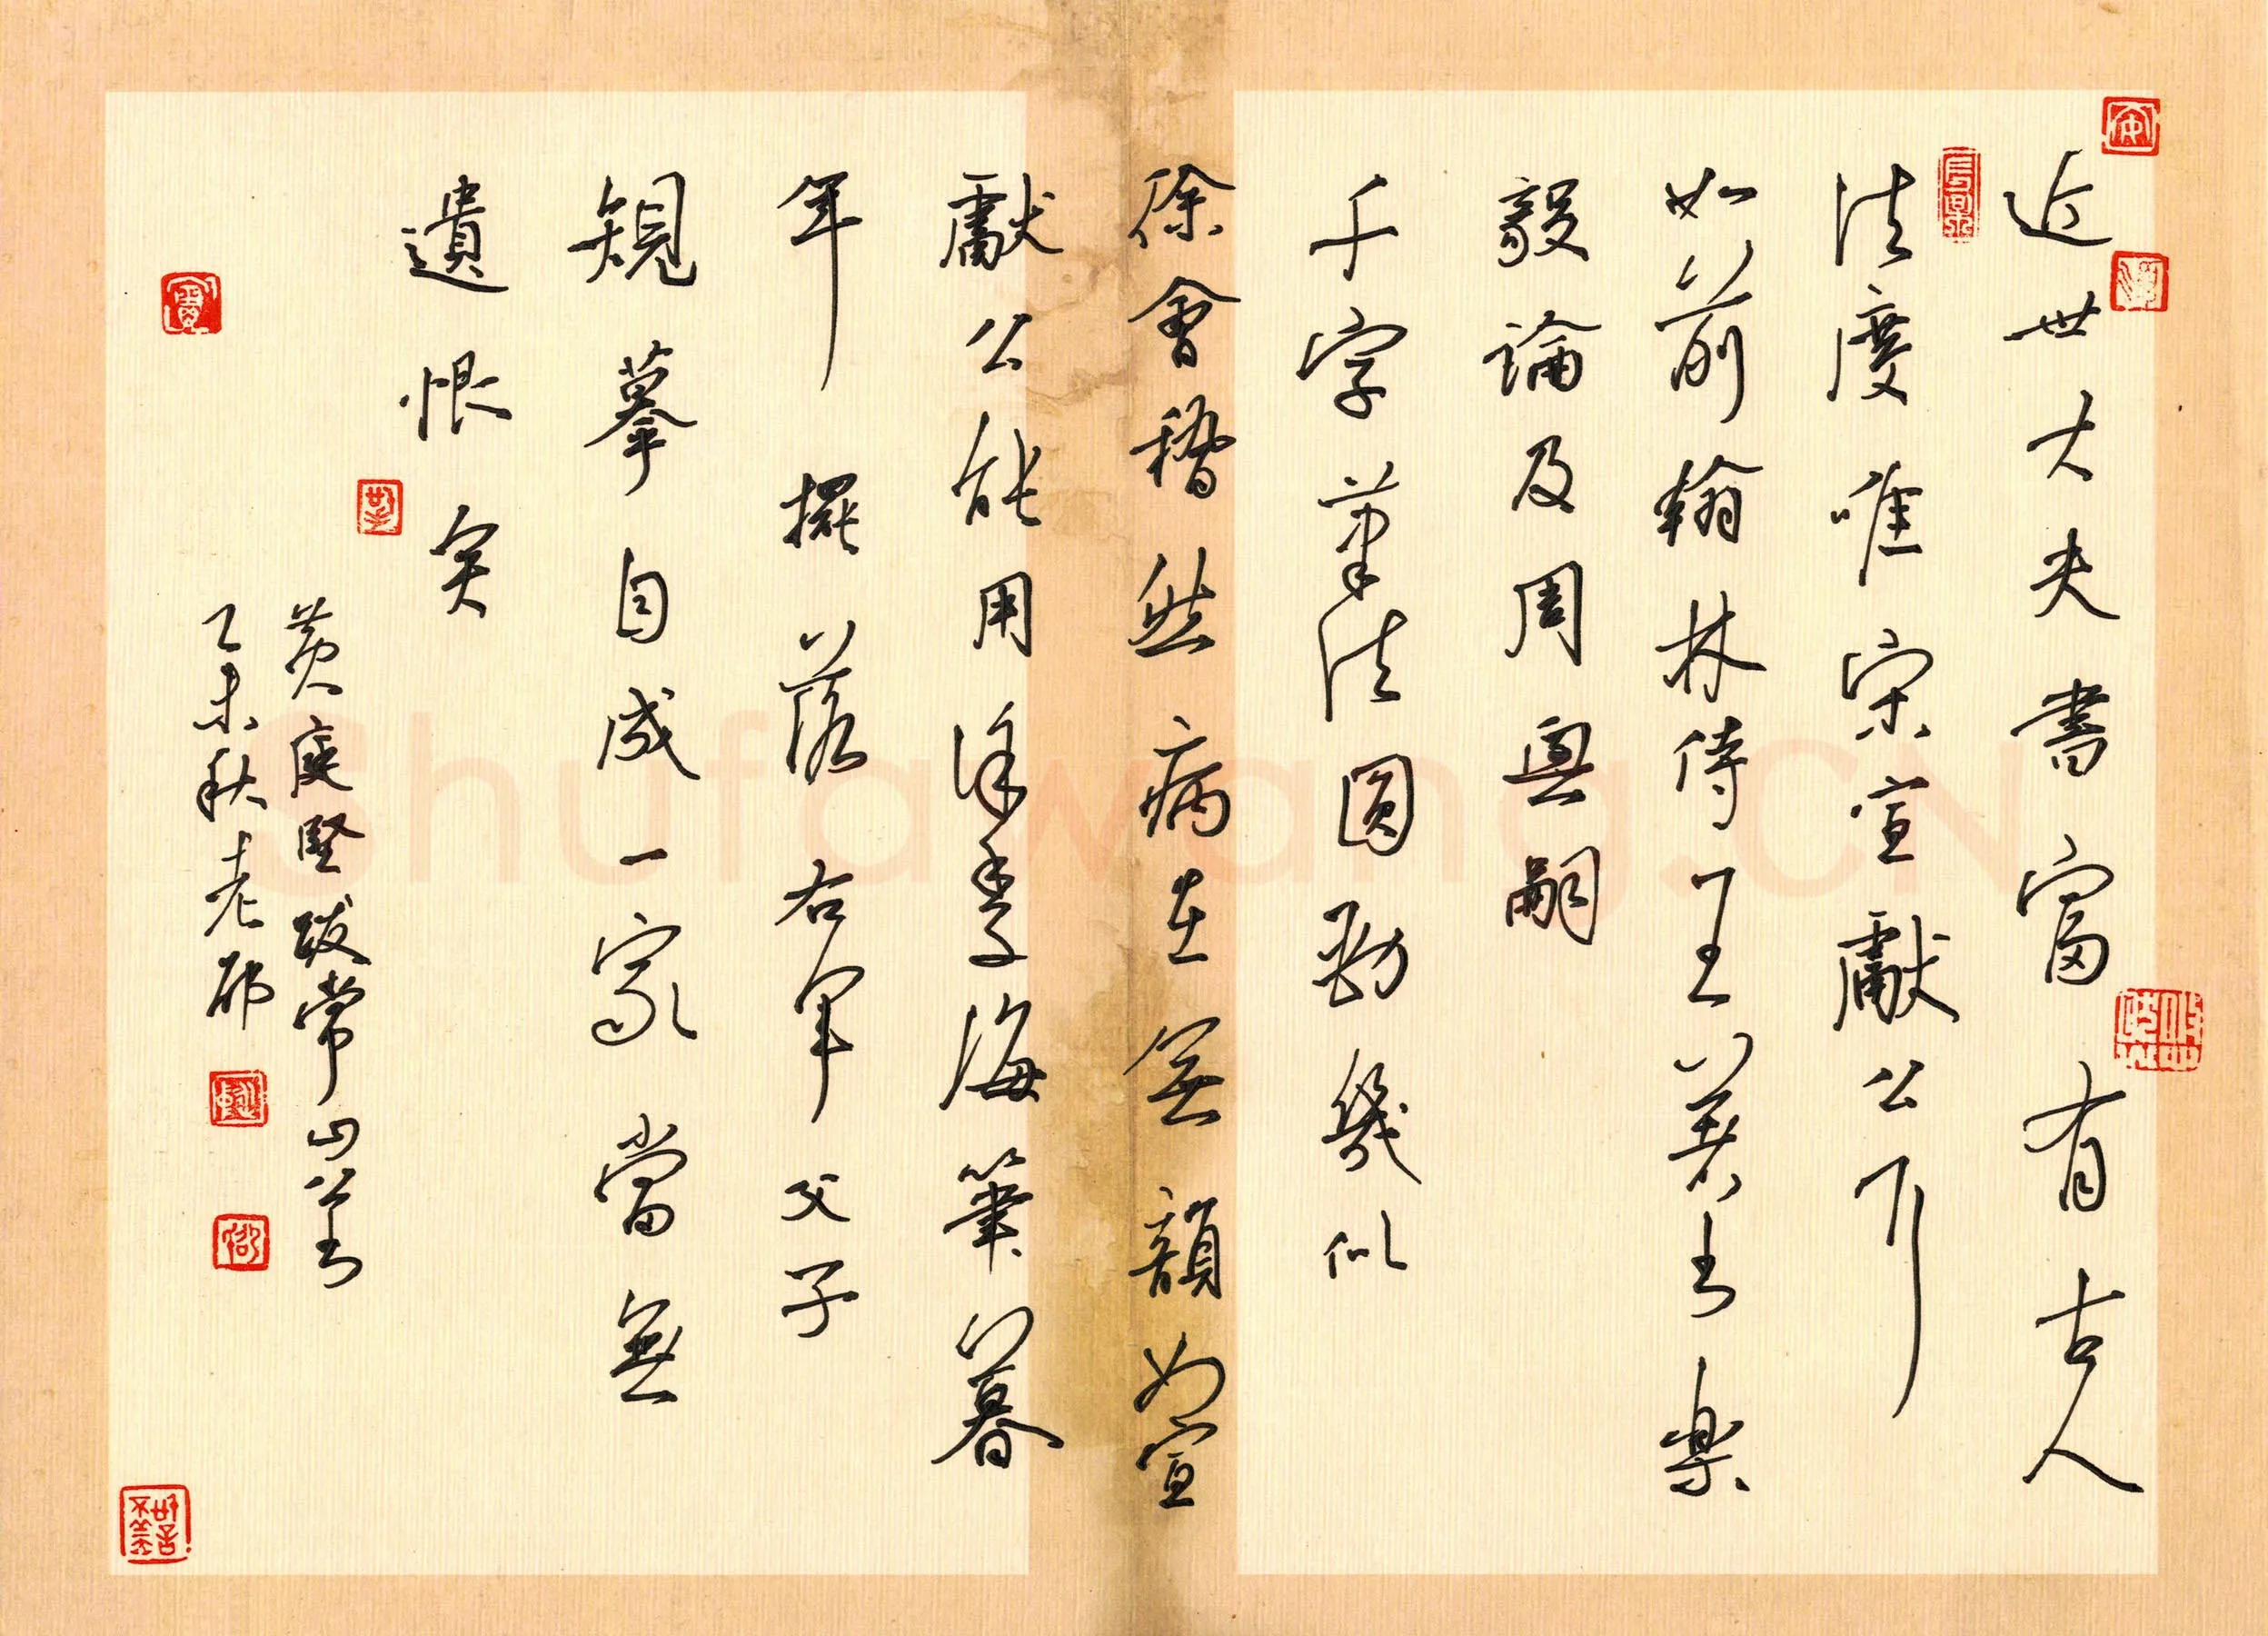 近世大夫書富有古人
法度唯宋宣獻公耳
如前翰林侍王著書樂
毅論及周興嗣
千字筆法圓勁幾似
徐會稽然病在無韻如宣
獻公能用徐季海筆暮
年擺落右軍父子
規摹自成一家當無
遺恨矣
黄庭堅跋常山公書
乙未秋老邢
Shufawang.CN